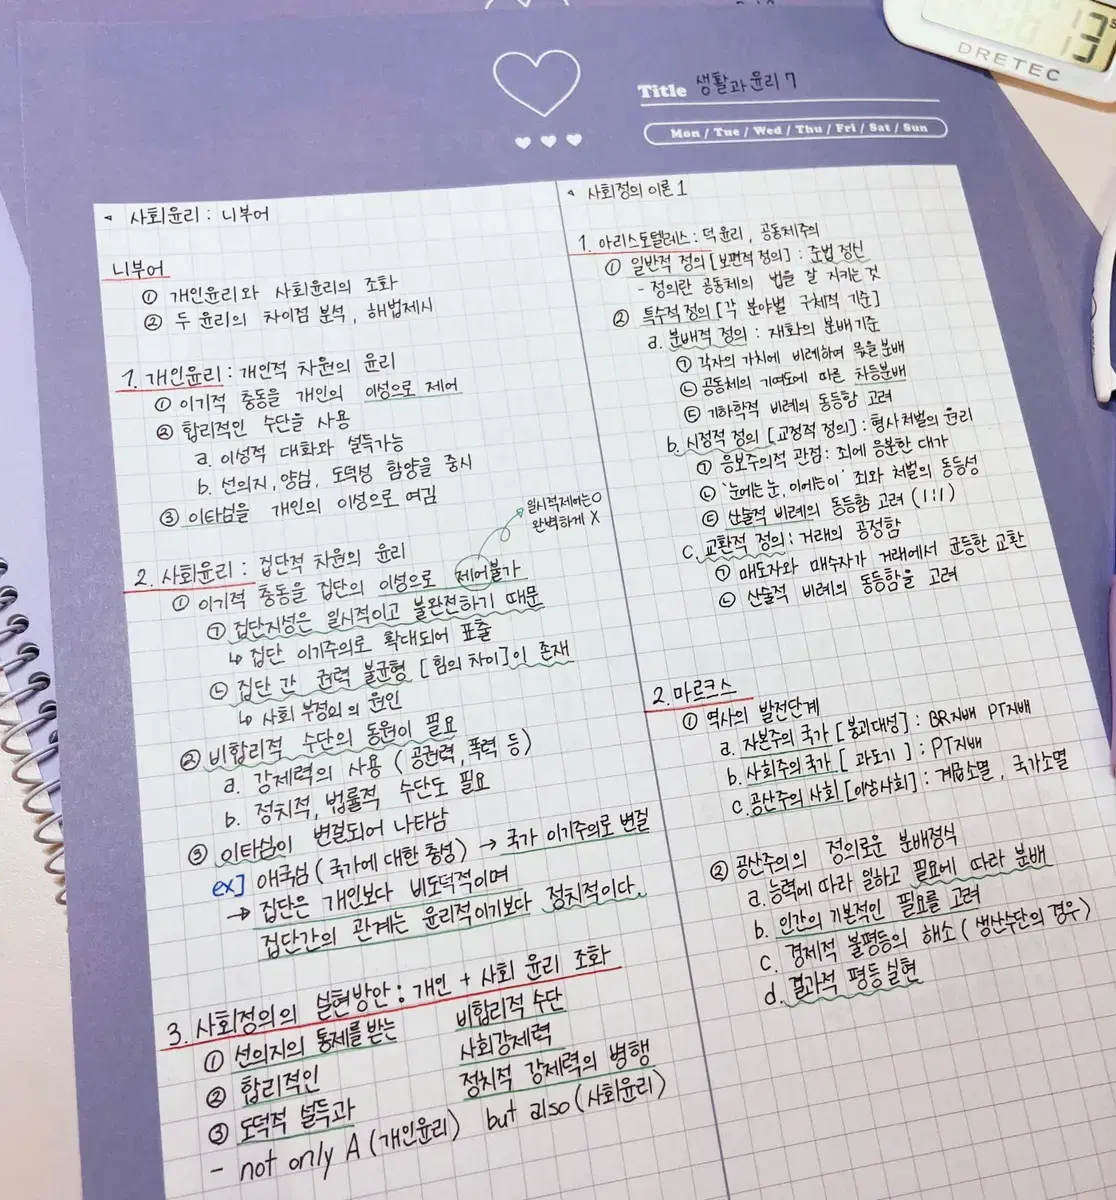 Title 생활과 윤리 7
Mon / Tue / Wed / Thu / Fri / Sat / Sun
DRETEC
사회윤리 : 니부어
니부어
① 개인윤리와 사회윤리의 조화
② 두 윤리의 차이점 분석, 해법제시
1. 개인윤리 : 개인적 차원의 윤리
① 이기적 충동을 개인의 이성으로 제어
② 합리적인 수단을 사용
a. 이성적 대화와 설득가능
b. 선의지, 양심, 도덕성 함양을 중시
③ 이타심을 개인의 이성으로 여김
일시적제어는O
완벽하게 X
2. 사회윤리 : 집단적 차원의 윤리
① 이기적 충동을 집단의 이성으로 제어불가
㉠ 집단지성은 일시적이고 불완전하기 때문
↳ 집단 이기주의로 확대되어 표출
㉡ 집단 간 권력 불균형 [힘의 차이]이 존재
↳ 사회 부정의의 원인
② 비합리적 수단의 동원이 필요
a. 강제력의 사용 (공권력, 폭력 등)
b. 정치적, 법률적 수단도 필요
③ 이타심이 변질되어 나타남
ex] 애국심 (국가에 대한 충성) → 국가 이기주의로 변질
→ 집단은 개인보다 비도덕적이며
집단간의 관계는 윤리적이기보다 정치적이다.
3. 사회정의의 실현방안 : 개인 + 사회 윤리 조화
① 선의지의 통제를 받는 비합리적 수단
② 합리적인 사회강제력
③ 도덕적 설득과 정치적 강제력의 병행
- not only A (개인윤리) but also (사회윤리)
사회정의 이론 1
1. 아리스토텔레스 : 덕 윤리, 공동체주의
① 일반적 정의 [보편적 정의] : 준법 정신
- 정의란 공동체의 법을 잘 지키는 것
② 특수적 정의 [각 분야별 구체적 기준]
a. 분배적 정의 : 재화의 분배기준
㉠ 각자의 가치에 비례하여 몫을 분배
㉡ 공동체의 기여도에 따른 차등분배
㉢ 기하학적 비례의 동등함 고려
b. 시정적 정의 [교정적 정의] : 형사처벌의 윤리
㉠ 응보주의적 관점 : 죄에 응분한 대가
㉡ '눈에는 눈, 이에는 이' 죄와 처벌의 동등성
㉢ 산술적 비례의 동등함 고려 (1:1)
c. 교환적 정의 : 거래의 공정함
㉠ 매도자와 매수자가 거래에서 균등한 교환
㉡ 산술적 비례의 동등함을 고려
2. 마르크스
① 역사의 발전단계
a. 자본주의 국가 [붕괴대성] : BR지배 PT지배
b. 사회주의 국가 [과도기] : PT지배
c. 공산주의 사회 [이상사회] : 계급소멸, 국가소멸
② 공산주의의 정의로운 분배정식
a. 능력에 따라 일하고 필요에 따라 분배
b. 인간의 기본적인 필요를 고려
c. 경제적 불평등의 해소 (생산수단의 경우)
d. 결과적 평등 실현